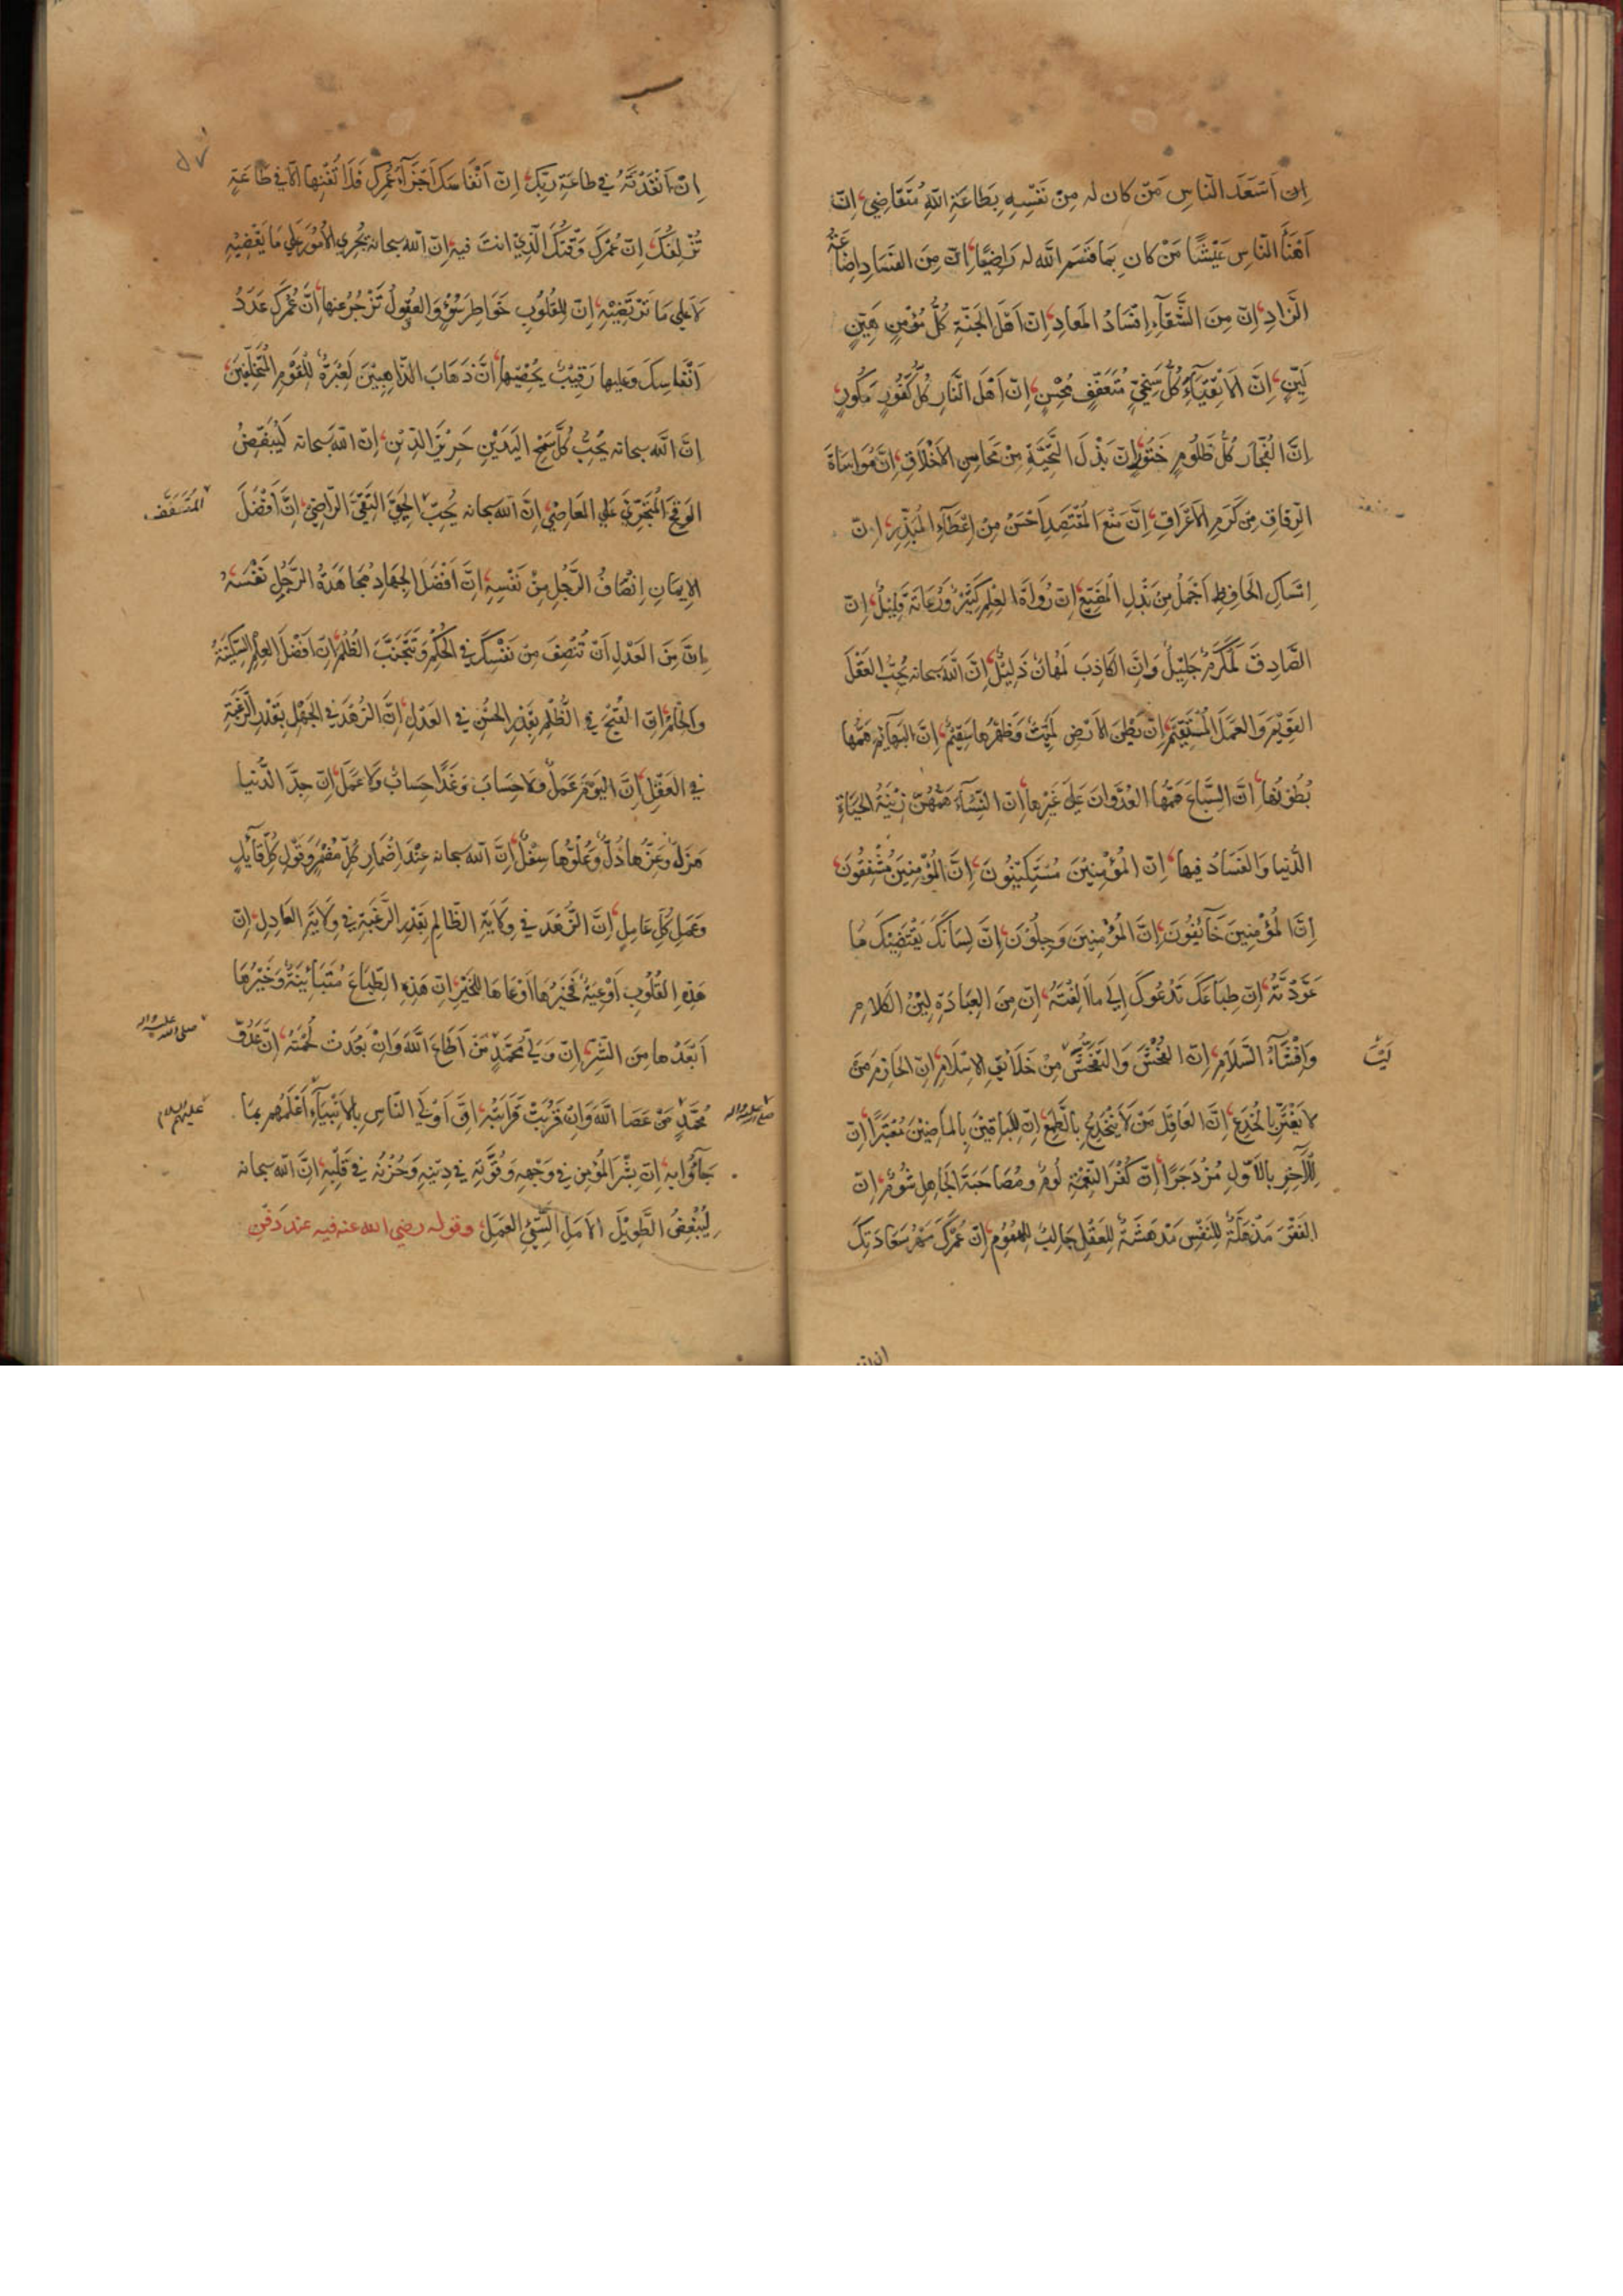 اِنّ اَسْعَدَ النّاسِ مَنْ كان له مِنْ نَفْسِهِ بِطَاعَةِ اللّٰهِ مُتَقَاضِي، اِنّ
اَهْنَأَ النّاسِ عَيْشًا مَنْ كان بِمَا قَسَمَ اللّٰه له رَاضِيًا، اِنّ مِنَ الفَسَادِ اِضَاعَةُ
الزّادِ، اِنّ مِنَ الشَّقَآءِ اِفْسَادُ المَعادِ، اِنّ اَهْلَ الجَنّةِ كُلُّ مُؤْمِنٍ هَيّنٍ
لَيّنٍ، اِنّ الاَتْقِيَآءَ كُلُّ سَخِيٍّ مُتَعَفِّفٍ مُحْسِنٍ، اِنّ اَهْلَ النَّارِ كُلُّ كَفُورٍ مَكُورٍ
اِنَّ الفُجّار كُلُّ ظَلُومٍ خَتُورٍ، اِنّ بَذْلَ التَّحِيَّةِ مِنْ مَحَاسِنِ الاَخْلَاقِ، اِنّ مُوَاسَاةَ
الرِّفَاقِ مِنْ كَرَمِ الاَعْرَاقِ، اِنَّ مَنْعَ المُقْتَصِدِ اَحْسَنُ مِنْ اِعْطَآءِ المُبَذِّرِ، اِنّ
اِمْسَاكِ الحَافِظِ اَجْمَلُ مِنْ بَذْلِ المُضَيّعِ، اِنّ رُوَاةَ العِلْمِ كَثِيْرٌ وَرُعَاتَهُ قَلِيْلٌ، اِنّ
الصَّادِقَ لَمُكَرَّمٌ جَلِيْلٌ وَاِنَّ الكَاذِبَ لَمُهَانٌ ذَلِيْلٌ، اِنَّ اللّٰهَ سبحانه يُحِبُّ العَقْلَ
القَوِيْمَ وَالعَمَلَ المُسْتَقِيْمَ، اِنّ بَطْنَ الاَرْضِ لَمَيِّتٌ وَظَهْرُهَا سَقِيْمٌ، اِنَّ البَهَآئِمَ هَمُّهَا
بُطُوْنُهَا، اِنَّ السِّبَاعَ هَمُّهَا العُدْوَانُ عَلٰى غَيْرِهَا، اِنّ النِّسَآءَ هَمُّهُنّ زِيْنَةُ الحَيَاةِ
الدُّنيا وَالفَسَادُ فيها، اِنّ المُؤْمِنِيْنَ مُسْتَكِيْنُونَ، اِنَّ المُؤْمِنِيْنَ مُشْفِقُونَ
اِنَّ المُؤْمِنِيْنَ خَآئِفُونَ، اِنَّ المُؤْمِنِيْنَ وَجِلُوْنَ، اِنّ لِسَانَكَ يَقْتَضِيْكَ مَا
عَوَّدْتَهُ، اِنّ طِبَاعَكَ تَدْعُوكَ اِلٰى ما اَلِفْتَهُ، اِنّ مِنَ العِبَادَةِ لِيْنُ الكَلَامِ
وَاِفْشَآءُ السَّلَامِ، اِنّ الفُحْشَ وَالتَّفَحُّشَ مِنْ خَلَائِقِ الاِسْلَامِ، اِنّ الحَازِمَ مَنْ
لَيْسَ
لا يَغْتَرُّ بِالخُدَعِ، اِنَّ العَاقِلَ مَنْ لَا يَنْخَدِعُ بِالطَّمَعِ، اِنّ لِلبَاقِيْنَ بِالمَاضِيْنَ مُعْتَبَرًا، اِنّ
لِلْآخِرِ بِالاَوّلِ مُزْدَجَرًا، اِنّ كُفْرَ النِّعْمَةِ لُومٌ وَمُصَاحَبَةَ الجَاهِلِ شُومٌ، اِنّ
الفَقْرَ مَذَلَّةٌ لِلنَّفْسِ مَدْهَشَةٌ لِلْعَقْلِ جَالِبٌ لِلْهُمُوْمِ، اِنّ عُمْرَكَ مَهْرُ سَعَادَتِكَ
اِنْ اَنْفَذْتَهُ في طاعَةِ رَبّكَ، اِنّ اَنْفَاسَكَ اَجْزَآءُ عُمْرِكَ فَلَا تُفْنِهَا اِلّا في طَاعَةٍ
تُزْلِفُكَ، اِنّ عُمْرَكَ وَقْتُكَ الَّذِيْ انتَ فيه، اِنّ اللّٰه سبحانه يُجْرِي الاُمُوْرَ عَلٰي مَا يَقْضِيْهِ
لَا عَلٰي مَا تَرْتَضِيْهِ، اِنّ لِلْقُلُوْبِ خَوَاطِرَ سُوْءٍ وَالعُقُولُ تَزْجُرُ عنها، اِنَّ عُمْرَكَ عَدَدُ
اَنْفَاسِكَ وَعليها رَقِيْبٌ يُحْصِيْهَا، اِنَّ ذَهَابَ الذَّاهِبِيْنَ لَعِبْرَةٌ لِلْقَوْمِ المُتَخَلِّفِيْنَ
اِنَّ اللّٰه سبحانه يُحِبُّ كُلَّ سَمْحِ اليَدَيْنِ حَرِيْزِ الدِّيْنِ، اِنّ اللّٰه سبحانه لَيُبْغِضُ
الوَقِحَ المُتَجَرِّئَ عَلٰي المَعَاصِيْ، اِنَّ اللّٰه سبحانه يُحِبّ الحَيِيَّ التَّقِيَّ الرّاضِيَ، اِنَّ اَفْضَلَ
المُتَعَفِّفَ
الاِيمَانِ اِنْصَافُ الرَّجُلِ مِنْ نَفْسِهِ، اِنَّ اَفْضَلَ الجِهَادِ مُجَاهَدَةُ الرَّجُلِ نَفْسَهُ
اِنَّ مِنَ العَدْلِ اَنْ تُنْصِفَ مِنْ نَفْسِكَ في الحُكْمِ وَتَجْتَنِبَ الظُّلْمَ، اِنّ اَفْضَلَ العِلْمِ السَّكِيْنَةُ
وَالحِلْمُ، اِنّ القُبْحَ في الظُّلْمِ بِقَدْرِ الحُسْنِ في العَدْلِ، اِنَّ الزُّهْدَ في الجَهْلِ بِقَدْرِ الرَّغْبَةِ
في العَقْلِ، اِنَّ اليَوْمَ عَمَلٌ وَلا حِسَابَ وَغَدًا حِسَابٌ وَلا عَمَلَ، اِنّ جِدَّ الدُّنيا
هَزْلٌ وَعِزَّهَا ذُلٌّ وَعُلُوَّهَا سِفْلٌ، اِنَّ اللّٰه سبحانه عِنْدَ اِضْمَارِ كُلِّ مُضْمِرٍ وَقَوْلِ كُلِّ قَآئِلٍ
وَعَمَلِ كُلِّ عَامِلٍ، اِنَّ الزُّهْدَ في وِلَايَةِ الظَّالِمِ بِقَدْرِ الرَّغْبَةِ في وِلَايَةِ العَادِلِ، اِنّ
هٰذِهِ القُلُوْبَ اَوْعِيَةٌ فَخَيْرُهَا اَوْعَاهَا لِلْخَيْرِ، اِنّ هٰذِهِ الطِّبَاعَ مُتَبَائِنَةٌ وَخَيْرُهَا
اَبْعَدُهَا مِنَ الشَّرِّ، اِنّ وَلِيَّ مُحَمَّدٍ مَنْ اَطَاعَ اللّٰهَ وَاِنْ بَعُدَتْ لُحْمَتُهُ، اِنَّ عَدُوَّ
صلى الله عليه واله
مُحَمَّدٍ مَنْ عَصَا اللّٰهَ وَاِنْ قَرُبَتْ قَرَابَتُهُ، اِنَّ اَوْلَي النّاسِ بِالاَنْبِيَآءِ اَعْلَمُهُمْ بِمَا
صلى الله عليه واله
عليهم السلام
جَآؤُا به، اِنّ بِشْرَ المُؤْمِنِ في وَجْهِهِ وَقُوَّتَهُ في دِيْنِهِ وَحُزْنَهُ في قَلْبِهِ، اِنَّ اللّٰه سبحانه
لَيُبْغِضُ الطَّوِيْلَ الاَمَلِ السَّيِّئَ العَمَلِ، وقوله رضي الله عنه فيه عند دَفْنِ